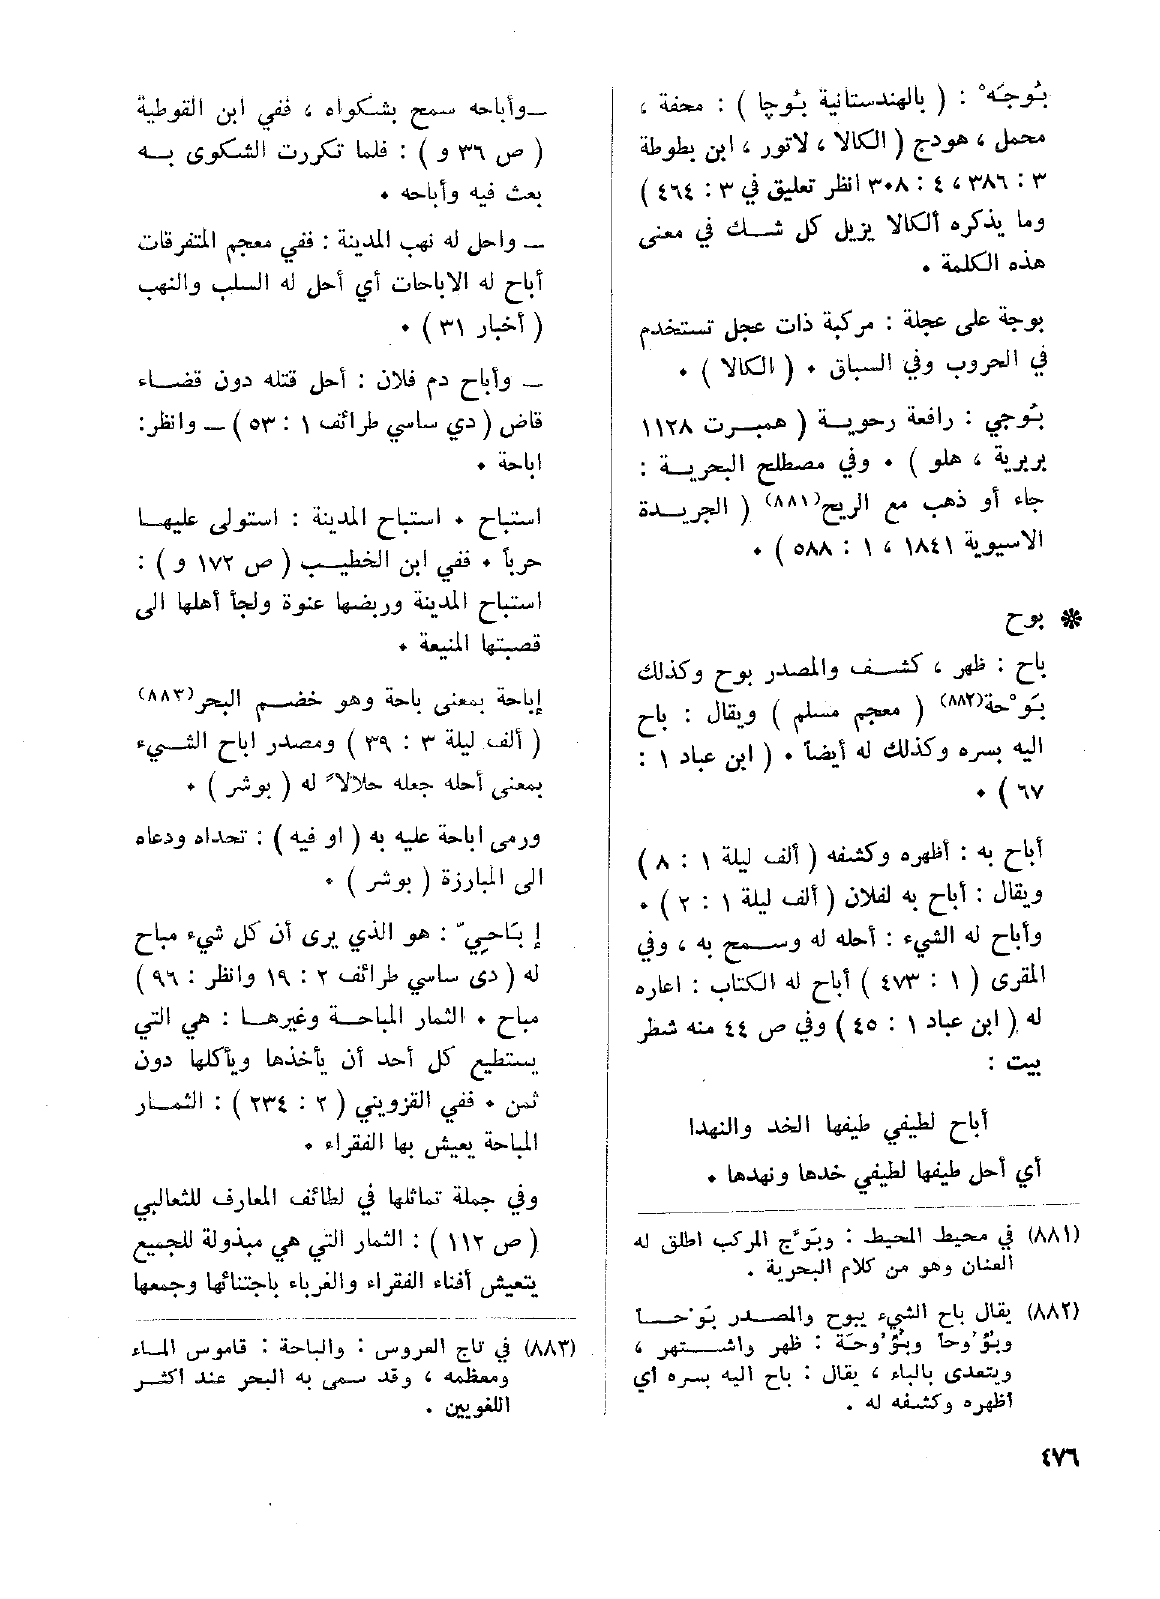 بُوجَه° : ( بالهندستانية بُوچا ) : محفة ،
محمل ، هودج ( الكالا ، لاتور ، ابن بطوطة
٣ : ٣٨٦ ، ٤ : ٣٠٨ انظر تعليق في ٣ : ٤٦٤ )
وما يذكره ألكالا يزيل كل شك في معنى
هذه الكلمة .
بوجة على عجلة : مركبة ذات عجل تستخدم
في الحروب وفي السباق . ( الكالا ) .
بُوجي : رافعة رحوية ( همبرت ١١٢٨
بربرية ، هلو ) . وفي مصطلح البحرية :
جاء أو ذهب مع الريح(٨٨١) ( الجريدة
الاسيوية ١٨٤١ ، ١ : ٥٨٨ ) .
* بوح
باح : ظهر ، كشف والمصدر بوح وكذلك
بَوْحة(٨٨٢) ( معجم مسلم ) ويقال : باح
اليه بسره وكذلك له أيضاً . ( ابن عباد ١ :
٦٧ ) .
أباح به : أظهره وكشفه ( ألف ليلة ١ : ٨ )
ويقال : أباح به لفلان ( ألف ليلة ١ : ٢ ) .
وأباح له الشيء : أحله له وسمح به ، وفي
المقرى ( ١ : ٤٧٣ ) أباح له الكتاب : اعاره
له ( ابن عباد ١ : ٤٥ ) وفي ص ٤٤ منه شطر
بيت :
أباح لطيفي طيفها الخد والنهدا
أي أحل طيفها لطيفي خدها ونهدها .
(٨٨١) في محيط المحيط : وبَوَّج المركب اطلق له
العنان وهو من كلام البحرية .
(٨٨٢) يقال باح الشيء يبوح والمصدر بَوْحاً
وبُؤُوحاً وبُؤُوحَة : ظهر واشتهر ،
ويتعدى بالباء ، يقال : باح اليه بسره أي
أظهره وكشفه له .
ــ وأباحه سمح بشكواه ، ففي ابن القوطية
( ص ٣٦ و ) : فلما تكررت الشكوى به
بعث فيه وأباحه .
ــ واحل له نهب المدينة : ففي معجم المتفرقات
أباح له الاباحات أي أحل له السلب والنهب
( أخبار ٣١ ) .
ــ وأباح دم فلان : أحل قتله دون قضاء
قاض ( دي ساسي طرائف ١ : ٥٣ ) ــ وانظر:
اباحة .
استباح . استباح المدينة : استولى عليها
حرباً . ففي ابن الخطيب ( ص ١٧٢ و ) :
استباح المدينة وربضها عنوة ولجأ أهلها الى
قصبتها المنيعة .
إباحة بمعنى باحة وهو خضم البحر(٨٨٣)
( ألف ليلة ٣ : ٣٩ ) ومصدر اباح الشيء
بمعنى أحله جعله حلالاً له ( بوشر ) .
ورمى اباحة عليه به ( او فيه ) : تحداه ودعاه
الى المبارزة ( بوشر ) .
إبَاحِيّ : هو الذي يرى أن كل شيء مباح
له ( دى ساسي طرائف ٢ : ١٩ وانظر : ٩٦ )
مباح . الثمار المباحة وغيرها : هي التي
يستطيع كل أحد أن يأخذها ويأكلها دون
ثمن . ففي القزويني ( ٢ : ٢٣٤ ) : الثمار
المباحة يعيش بها الفقراء .
وفي جملة تماثلها في لطائف المعارف للثعالبي
( ص ١١٢ ) : الثمار التي هي مبذولة للجميع
يتعيش أفناء الفقراء والغرباء باجتنائها وجمعها
(٨٨٣) في تاج العروس : والباحة : قاموس الماء
ومعظمه ، وقد سمى به البحر عند أكثر
اللغويين .
٤٧٦